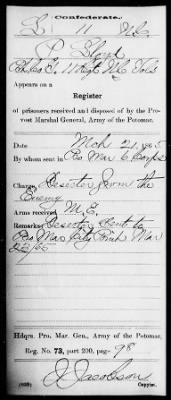 Confederate.
L 11 N.C.
P. Lloyd
11 Regt N.C. Tols
Appears on a
Register
of prisoners received and disposed of by the Pro-
vost Marshal General, Army of the Potomac.
Date Mch 21, 1865
By whom sent in Pro Mar 6 Corps
Charge Deserter from the
Enemy
Arms received M.E.
Remarks Deserter Sent to
Pro Mar City Point Mar
22/65
Hdqrs. Pro. Mar. Gen., Army of the Potomac.
Reg. No. 73, part 200, page 98
J. Jacobson
Copyist.